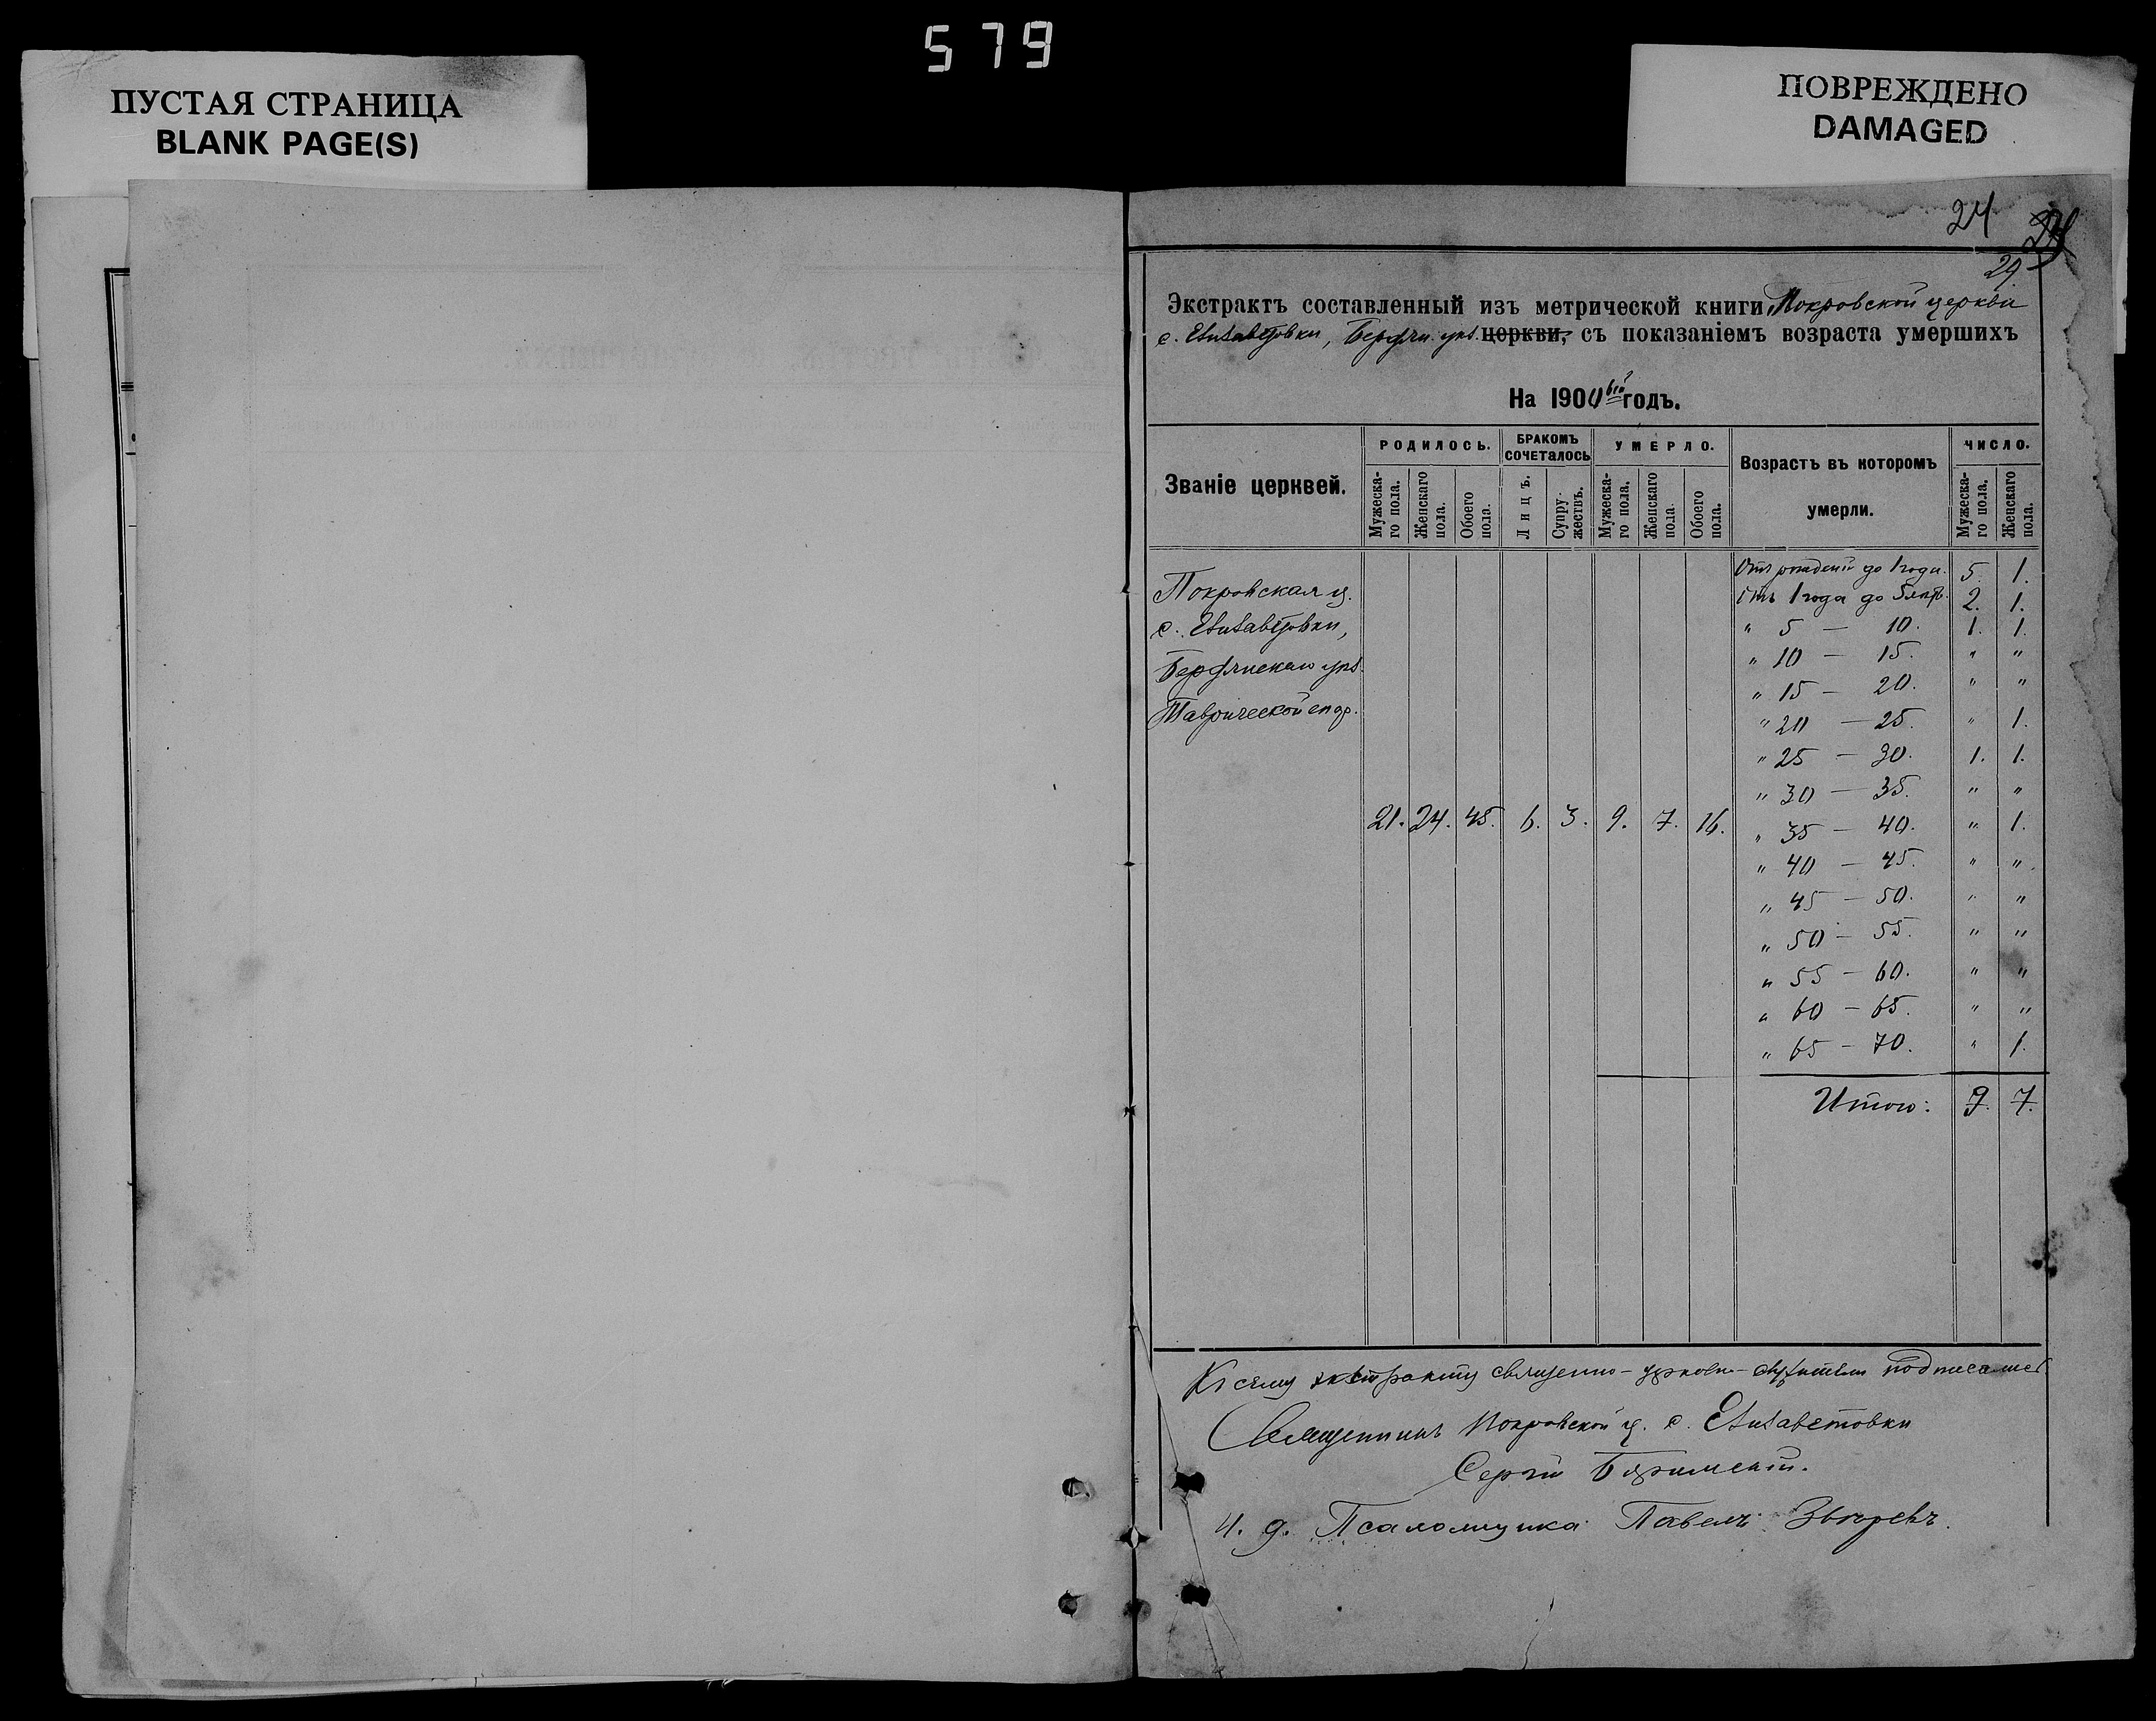 579
ПУСТАЯ СТРАНИЦА
BLANK PAGE(S)
ПОВРЕЖДЕНО
DAMAGED
24
29
Экстрактъ составленный изъ метрической книги Покровской церкви
с. Елизаветовки, Бердян. уѣз. церкви, съ показаніемъ возраста умершихъ
На 1900ый годъ.
Званіе церквей.
РОДИЛОСЬ.
БРАКОМЪ СОЧЕТАЛОСЬ
УМЕРЛО.
Возрастъ въ которомъ умерли.
ЧИСЛО.
Мужеска-го пола.
Женскаго пола.
Обоего пола.
Лицъ.
Супру-жествъ.
Мужеска-го пола.
Женскаго пола
Обоего пола.
Мужеска-го пола.
Женскаго пола.
Покровская ц.
с. Елизаветовки,
Бердянскаго уѣз.
Таврической епар.
21. 24. 45. 6. 3. 9. 7. 16.
Отъ рожденія до 1 года. 5. 1.
Отъ 1 года до 5 лѣтъ. 2. 1.
" 5 — 10. 1. 1.
" 10 — 15. " "
" 15 — 20. " "
" 20 — 25. " 1.
" 25 — 30. 1. 1.
" 30 — 35. " "
" 35 — 40. " 1.
" 40 — 45. " "
" 45 — 50. " "
" 50 — 55. " "
" 55 — 60. " "
" 60 — 65. " "
" 65 — 70. " 1.
Итого: 9. 7.
Къ сему экстракту священно-церковно-служители подписались
Священникъ Покровской ц. с. Елизаветовки
Сергій
И. д. Псаломщика Павелъ Звѣревъ.